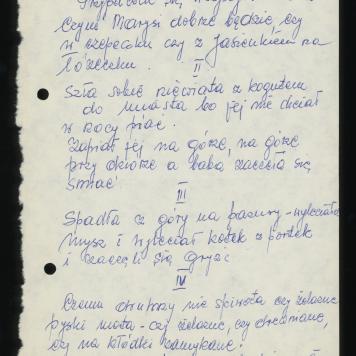 Czyńś Marysi dobrze będzie, czy
w czepecku czy z Jasieńkiem na
łózecku.
II
Szła sobie niewiasta z kogutem
do miasta bo jej nie chciał
w nocy piać.
Zapiał jej na górze, na górze
przy dziórze a baba zaczęła się
śmiać
III
Spadła z góry na pazury - wyleciała
mysz i wyleciał kotek z portek
i zaczęli się gryźć
IV
Czemu chłopczy nie śpiwota czy żelazne
pyski mota - czy żelazne, czy drewniane,
czy na kłódki zamykane.